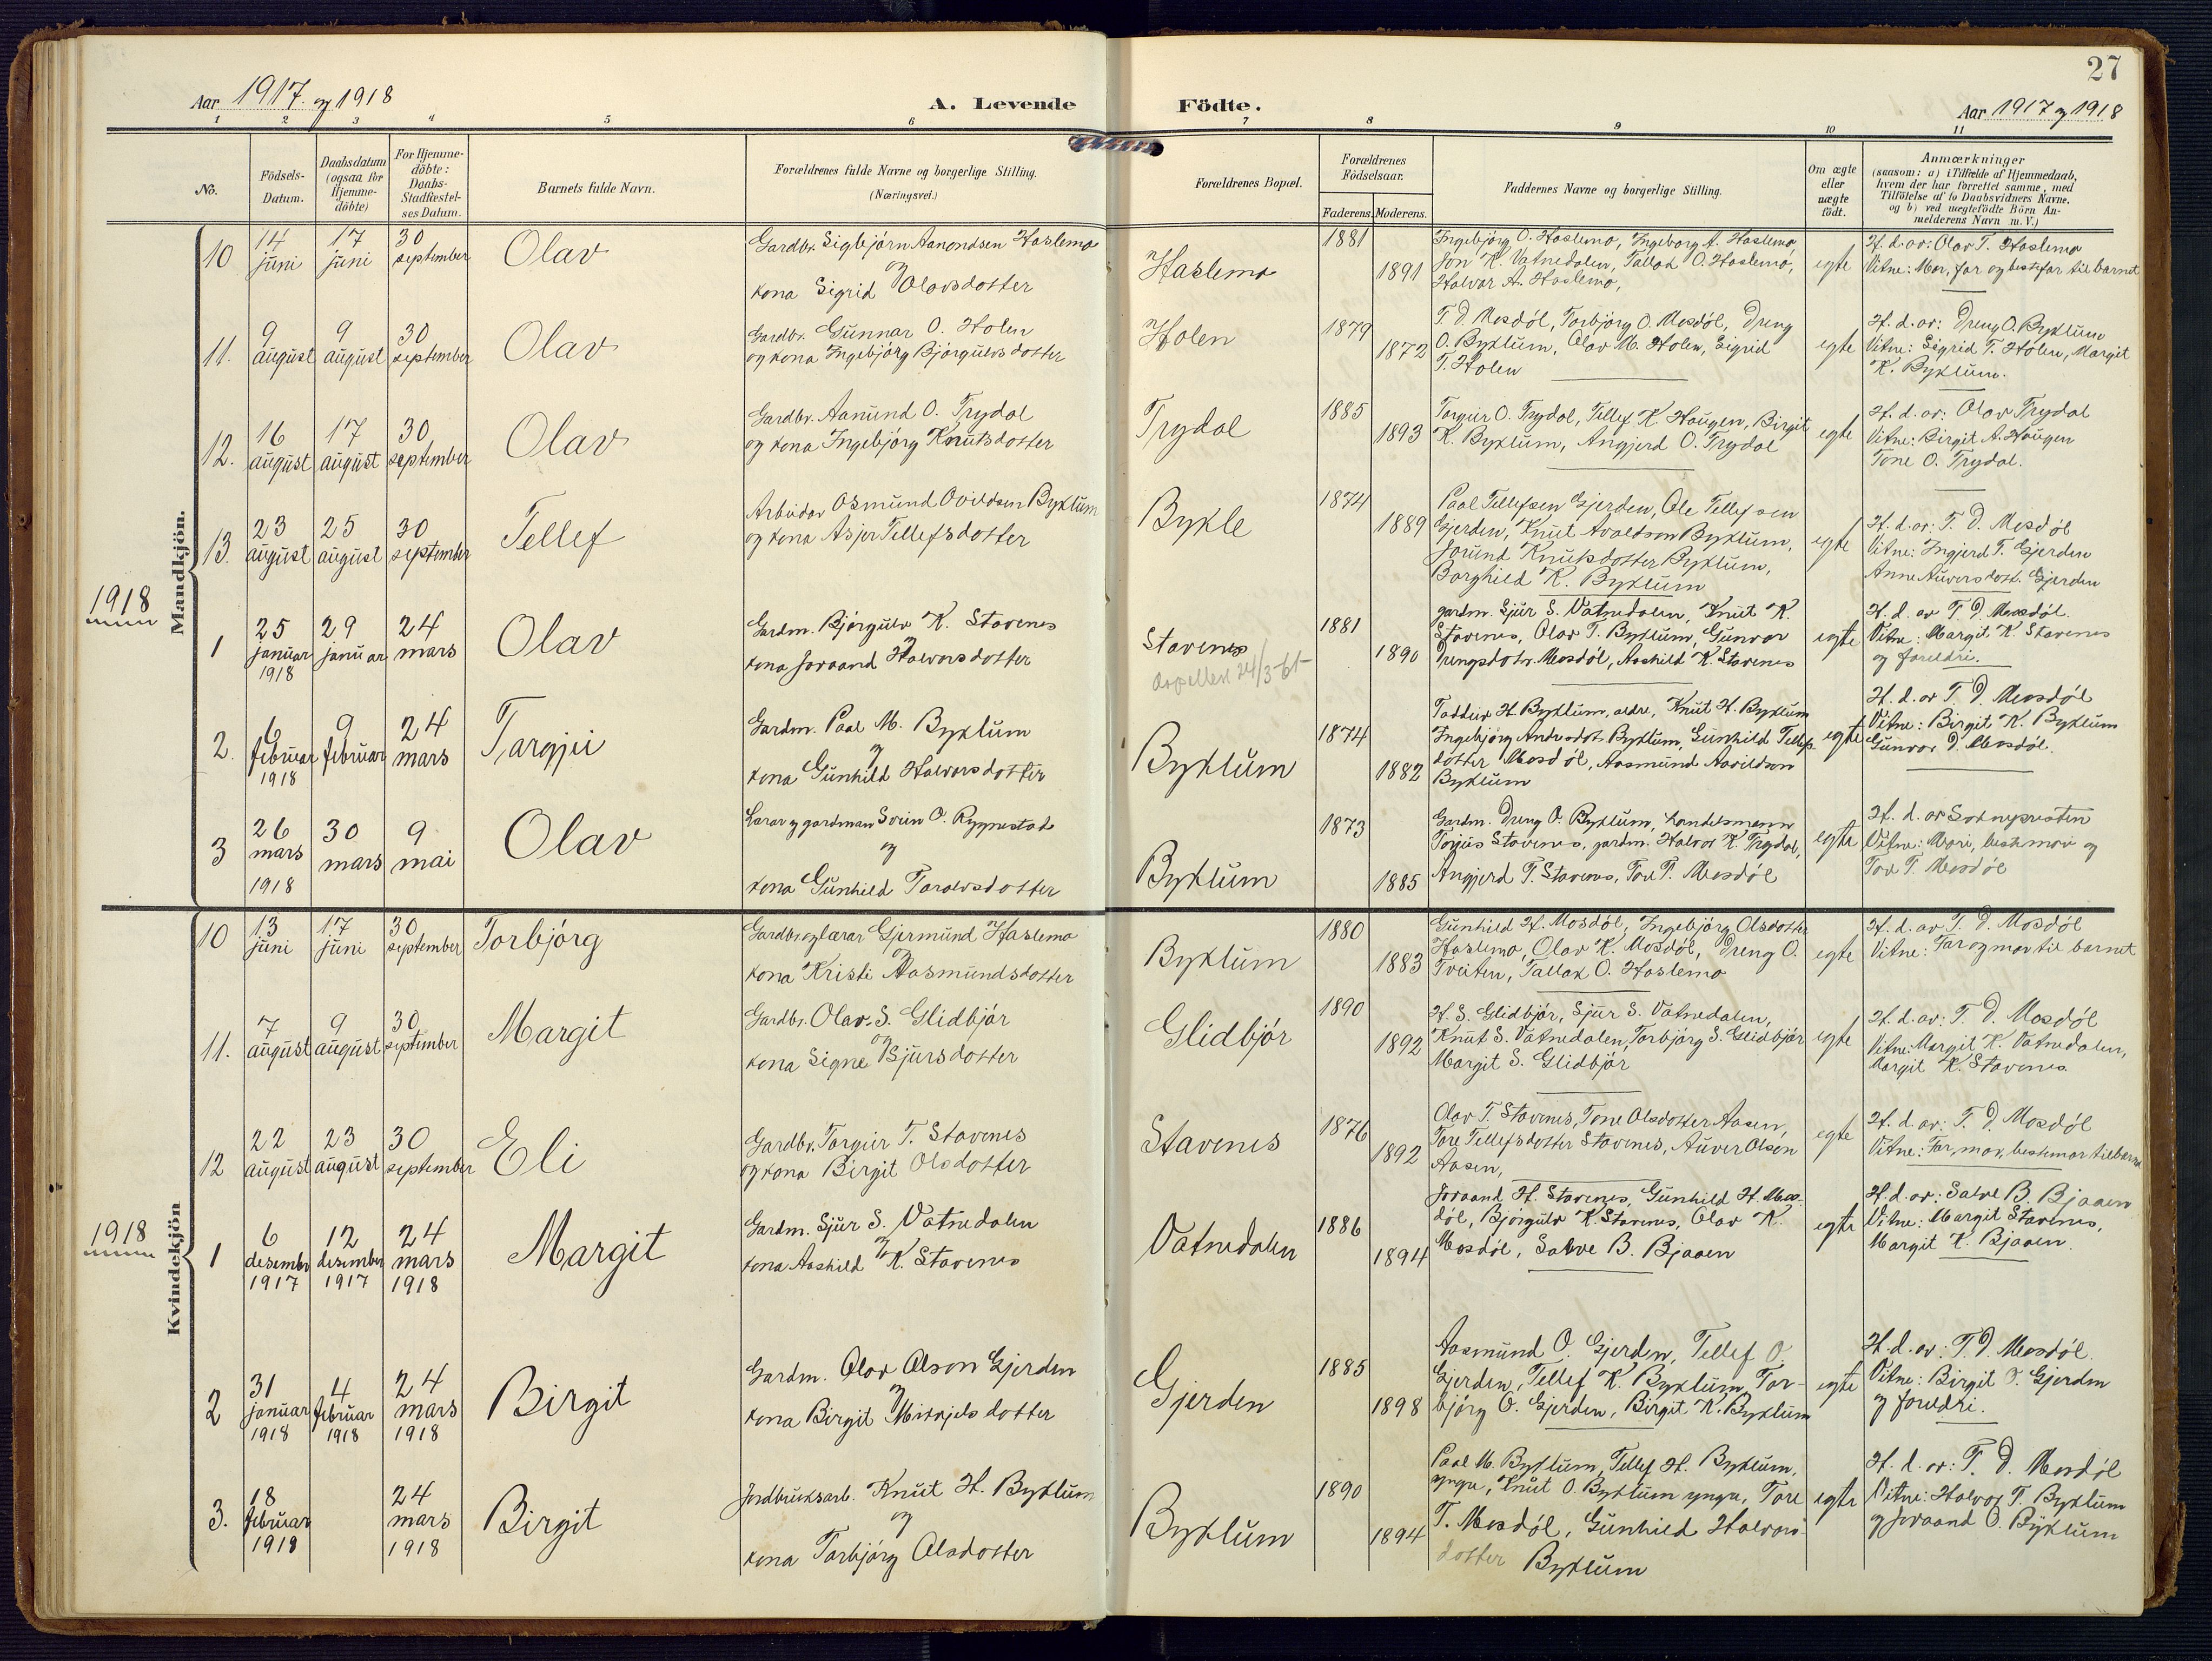 27
Aar 1917 og 1918
A. Levende Födte.
Aar 1917 og 1918
1 2 3 4 5 6 7 8 9 10 11
No.
Födsels-
Datum.
Daabsdatum
(ogsaa for
Hjemme-
döbte)
For Hjemme-
döbte:
Daabs-
Stadfæstel-
ses Datum.
Barnets fulde Navn.
Forældrenes fulde Navne og borgerlige Stilling.
(Næringsvei.)
Forældrenes Bopæl.
Forældrenes
Födselsaar.
Faderens. Moderens.
Faddernes Navne og borgerlige Stilling.
Om ægte
eller
uægte
födt.
Anmærkninger
(saasom: a) i Tilfælde af Hjemmedaab,
hvem der har forrettet samme, med
Tilföielse af to Daabsvidners Navne,
og b) ved uægtefödte Börn An-
melderens Navn m. V.)
Mandkjön.
10
14
juni
17
juni
30
september
Olav
Gardbr. Sigbjörn Aanondsen Haslemo
og
kona Sigrid Olavsdotter
Haslemo
1881
1891
Ingebjörg O. Haslemo, Ingeborg A. Haslemo,
Jon K. Vatnedalen, Tallak O. Haslemo,
Halvor A. Haslemo,
egte
H. d. av: Olav T. Haslemo
Vitne: Mor, far og bestefar til barnet
11.
9
august
9
august
30
september
Olav
Gardbr. Gunnar O. Holen
og kona Ingebjörg Björgulvsdotter
Holen
1879
1872
T. D. Mosdöl, Torbjörg O. Mosdöl, Dreng
O. Byklum, Olav M. Holen, Sigrid
T. Holen
egte
H. d. av: Dreng O. Byklum
Vitne: Sigrid T. Holen, Margit
K. Byklum.
12.
16
august
17
august
30
september
Olav
Gardbr. Aanund O. Trydal
og kona Ingebjörg Knutsdotter
Trydal
1885
1893
Torgeir O. Trydal, Tellef K. Haugen, Birgit
K. Byklum, Angjerd O. Trydal
egte
H. d. av: Olav Trydal
Vitne: Birgit A. Haugen
Tone O. Trydal.
13.
23
august
25
august
30
september
Tellef
Arbeidar Osmund Avildsen Byklum
og kona Asjer Tellefsdotter
Bykle
1874
1889
Paal Tellefsen Gjerden, Ole Tellefsen
Gjerden, Knut Avaldson Byklum,
Jorund Knutsdotter Byklum,
Borghild K. Byklum
egte
H. d. av: T. D. Mosdöl
Vitne: Ingjerd T. Gjerden
Anne Auversdott. Gjerden
1918
1
25
januar
1918
29
januar
24
mars
Olav
Gardm. Björgulv K. Stavenes
og
kona Joraand Halvorsdotter
Stavenes
1881
1890
gardm. Sjur S. Vatnedalen, Knut K.
Stavenes, Olav T. Byklum, Gunvor
Drengsdotr. Mosdöl, Aashild K. Stavenes
egte
H. d. av T. D. Mosdöl.
Vitne: Margit K. Stavenes
og foreldri.
2.
6
februar
1918
9
februar
24
mars
Targjei
Gardm. Paal M. Byklum
og
kona Gunhild Halvorsdotter
Byklum
1874
1882
Taddeiv H. Byklum, eldre, Knut H. Byklum
Ingebjörg Andvsdot. Byklum, Gunhild Tellefs-
dotter Mosdöl, Aasmund Aavildson
Byklum
egte
H. d. av T. D. Mosdöl
Vitne: Birgit K. Byklum
Gunvor D. Mosdöl.
3
26
mars
1918
30
mars
9
mai
Olav
Lærar og gardmann Svein O. Rygnestad
og
kona Gunhild Taralvsdotter
Byklum
1873
1885
Gardm. Dreng O. Byklum, handelsmann
Torjus Stavenes, gardm. Halvor K. Trydal,
Angjerd T. Stavenes, Tor T. Mosdöl
egte
H. d. av Soknepresten
Vitne: Mori, bestmori og
Tor T. Mosdöl
Kvindekjön
10
13
juni
17
juni
30
september
Torbjörg
Gardbr. og lærar Gjermund Haslemo
og
kona Kristi Aasmundsdotter
Byklum
1880
1883
Gunhild H. Mosdöl, Ingebjörg Olsdotter
Haslemo, Olav K. Mosdöl, Dreng O.
Tveiten, Tallak O. Haslemo
egte
H. d. av T. D. Mosdöl
Vitne: Far og mor til barnet
11.
7
august
9
august
30
september
Margit
Gardbr. Olav S. Glidbjör
og
kona Signe Sjursdotter
Glidbjör
1890
1892
H. S. Glidbjör, Sjur S. Vatnedalen,
Knut S. Vatnedalen, Torbjörg S. Glidbjör
Margit S. Glidbjör
egte
H. d. av: T. D. Mosdöl
Vitne: Margit K. Vatnedalen,
Margit K. Stavenes
12
22
august
23
august
30
september
Eli
Gardbr. Torgeir T. Stavenes
og kona Birgit Olsdotter
Stavenes
1876
1892
Olav T. Stavenes, Tone Olsdotter Aasen,
Tore Tellefsdotter Stavenes, Auver Olson
Aasen,
egte
H. d. av: T. D. Mosdöl
Vitne: Far, mor, bestemor til barne
1918
1
6
desember
1917
12
desember
1917
24
mars
1918
Margit
Gardm. Sjur S. Vatnedalen
og
kona Aashild K. Stavenes
Vatnedalen
1886
1894
Joraand H. Stavenes, Gunhild H. Mos-
döl, Björgulv K. Stavenes, Olav K.
Mosdöl, Salve B. Bjaaen
egte
H. d. av: Salve B. Bjaaen
Vitne: Margit Stavenes,
Margit K. Bjaaen.
2
31
januar
1918
4
februar
1918
24
mars
1918
Birgit
Gardm. Olav Olson Gjerden
og
kona Birgit Mikkjelsdotter
Gjerden
1885
1898
Aasmund O. Gjerden, Tellef O
Gjerden, Tellef K. Byklum, Tor-
björg O. Gjerden, Birgit K. Byklum
egte
H. d. av: T. D. Mosdöl.
Vitne: Birgit T. Gjerden
og foreldri.
3.
18
februar
1918
24
mars
1918
Birgit
Jordbruksarb. Knut H. Byklum
og
kona Torbjörg Olsdotter
Byklum
1890
1894
Paal M. Byklum, Tellef H. Byklum,
yngre, Knut O. Byklum yngre, Tore
T. Mosdöl, Gunhild Halvors-
dotter Byklum
egte
H. d. av: T. D. Mosdöl
Vitne: Halvor T. Byklum
og Joraand O. Byklum